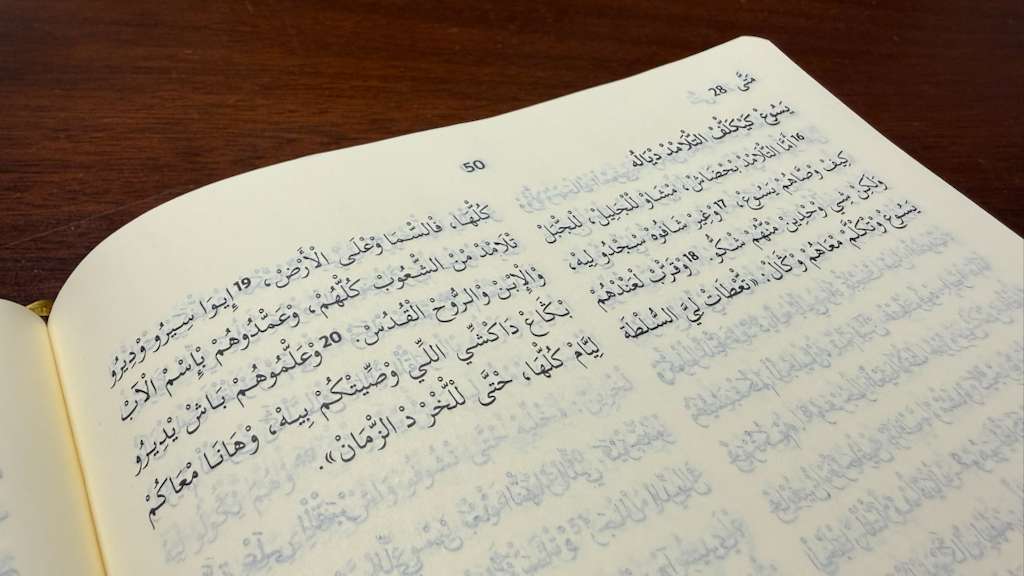 مَتَّى 28
50
يَسُوعْ كَيْكَلَّفْ التّْلَامْدْ دْيَالُه
16 أَمَّا التّْلَامْدْ بْحْضَاشْ، مْشَاوْ لْلْجَلِيلْ، لْلْجْبَلْ
كِيفْ وْصَّاهُمْ يَسُوعْ، 17 وْغِيرْ شَافُوهْ سْجْدُو لِيهْ،
وَلَكِنْ شِي وْحْدِينْ مْنْهُمْ شْكُّو. 18 وْقَرّْبْ لْعَنْدْهُمْ
يَسُوعْ وْتْكَلّْمْ مْعَاهُمْ وْݣَالْ: «تْعْطَاتْ لِيَ السُّلْطَة
كُلّْهَا، فْالسّْمَا وْعْلَى الْأَرْضْ، 19 إِيوَا سِيرُو وْدِيرُو
تْلَامْدْ مْنْ الشُّعُوبْ كُلّْهُمْ، وْعَمّْدُوهُمْ بْإِسْمْ الْآبْ
وْالْإِبْنْ وْالرُّوحْ الْقُدُسْ. 20 وْعَلّْمُوهُمْ بَاشْ يْدِيرُو
بْݣَاعْ دَاكْشِّي اللِّي وْصِّيتْكُمْ بِيهْ، وْهَانَا مْعَاكُمْ
لِيَّامْ كُلّْهَا، حْتَّى لْلْخْرْ دْ الزّْمَانْ».